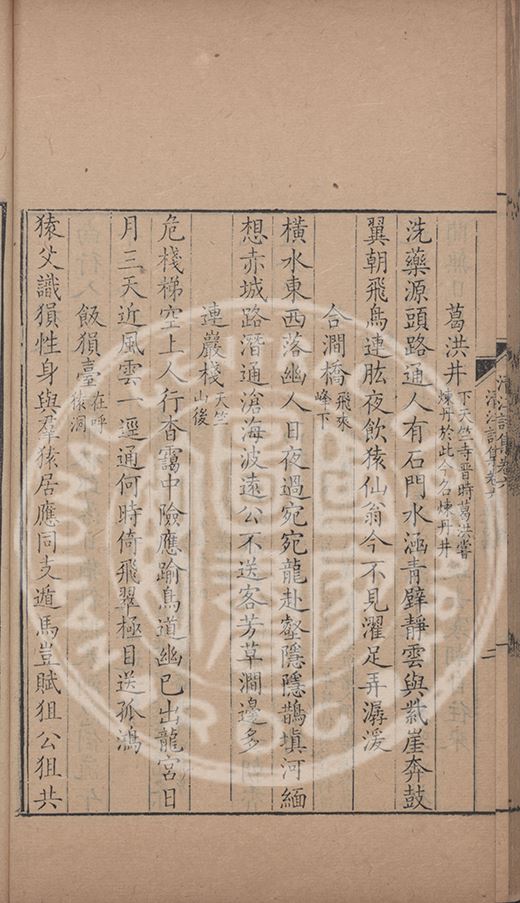 葛洪井 下天竺寺晋時葛洪嘗
煉丹於此今名煉丹井
洗藥源頭路通人有石門水涵青壁靜雲與紫崖奔鼓
翼朝飛鳥連肱夜飲猿仙翁今不見濯足弄潺湲
合澗橋 飛來
峰下
橫水東西落幽人日夜過宛宛龍赴壑隱隱鵲填河緬
想赤城路潛通滄海波遠公不送客芳草澗邊多
連巖棧 天竺
山後
危棧梯空上人行杳靄中險應踰鳥道幽已出龍宮日
月三天近風雲一逕通何時倚飛翠極目送孤鴻
飯猿臺 在呼
猿洞
猿父識猿性身與羣猿居應同支遁馬豈賦狙公狙共